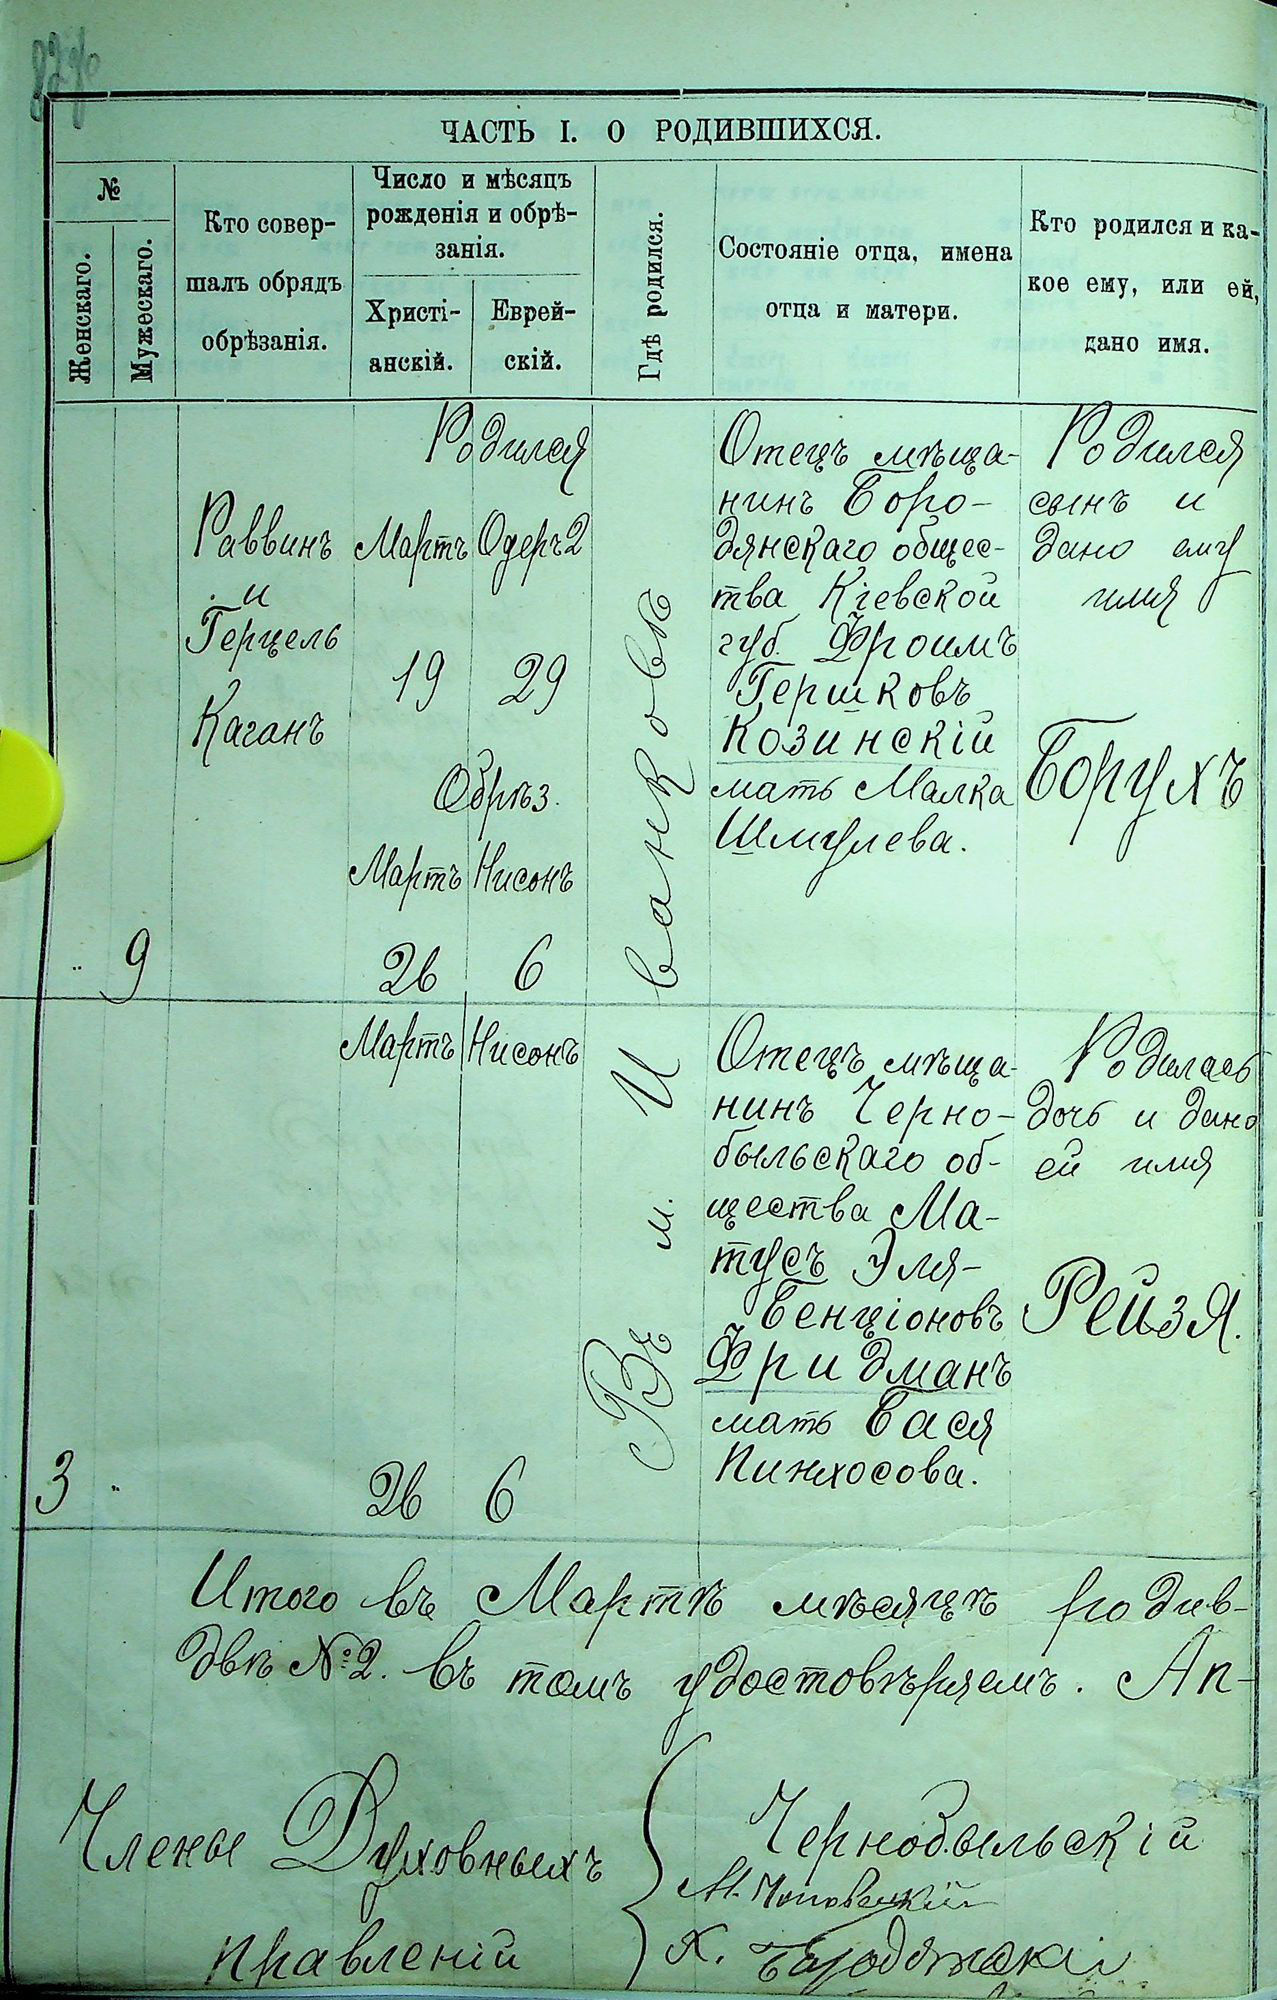 ЧАСТЬ I. О РОДИВШИХСЯ.
№
Женскаго.
Мужескаго.
Кто совер-
шалъ обрядъ
обрѣзанія.
Число и мѣсяцъ
рожденія и обрѣ-
занія.
Христі-
анскій.
Еврей-
скій.
Гдѣ родился.
Состояніе отца, имена
отца и матери.
Кто родился и ка-
кое ему, или ей,
дано имя.
" 9
Раввинъ
и
Герцель
Каганъ
Родился
Мартъ Одеръ 2
19 29
Обрѣз.
Мартъ Нисонъ
26 6
Въ м. Иванковѣ
Отецъ мѣща-
нинъ Боро-
дянскаго общес-
тва Кіевской
губ. Фроимъ
Гершковъ
Козинскій
мать Малка
Шмулева.
Родился
сынъ и
дано ему
имя
Борухъ
3 "
Мартъ Нисонъ
26 6
Отецъ мѣща-
нинъ Черно-
быльскаго об-
щества Ма-
тусъ Эля-
Бенціоновъ
Фридманъ
мать Бася
Пинхосова.
Родилась
дочь и дано
ей имя
Рейзя.
Итого въ Мартѣ мѣсяцѣ родив-
двѣ №2. въ томъ удостовѣряемъ. Ап-
Члены Духовныхъ
правленій
Чернобыльскій
М.
Х. Бародянскій